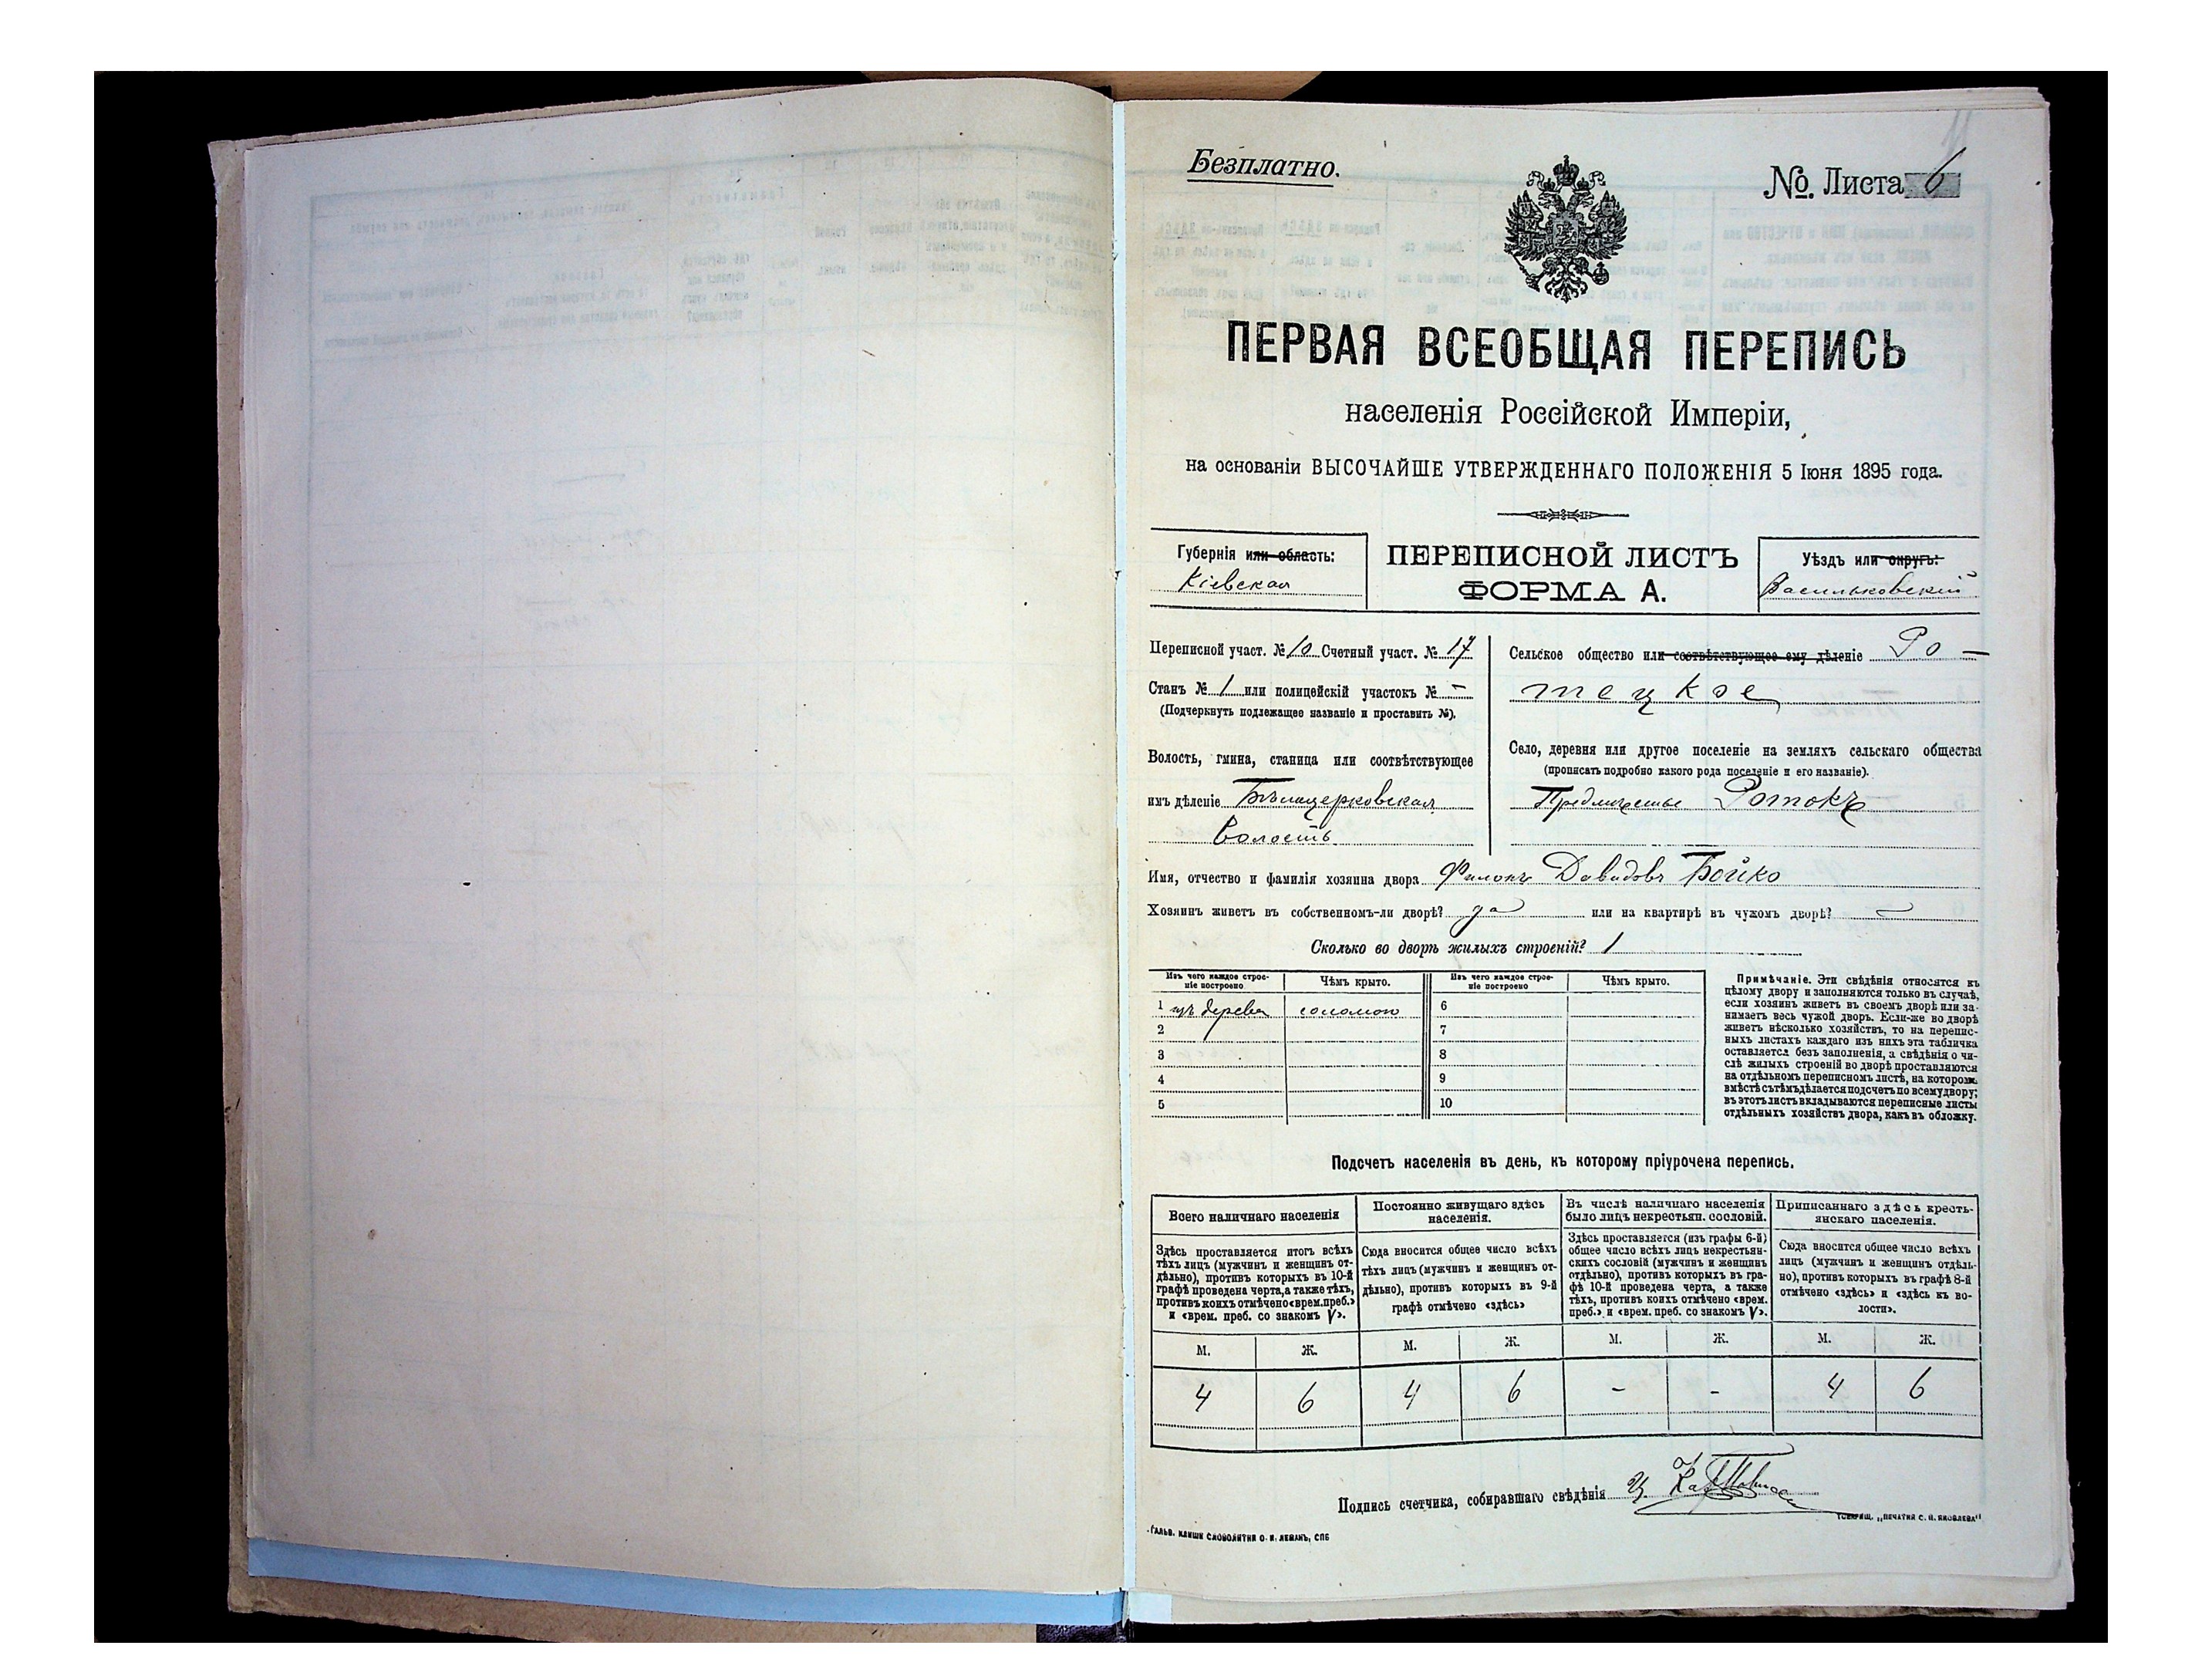 Безплатно.
No. Листа 6
ПЕРВАЯ ВСЕОБЩАЯ ПЕРЕПИСЬ
населенія Россійской Имперіи,
на основаніи ВЫСОЧАЙШЕ УТВЕРЖДЕННАГО ПОЛОЖЕНІЯ 5 Іюня 1895 года.
Губернія или область:
Кіевская
ПЕРЕПИСНОЙ ЛИСТЪ
ФОРМА А.
Уѣздъ или округъ:
Васильковскій
Переписной участ. № 10 Счетный участ. № 17
Станъ № 1 или полицейскій участокъ № -
(Подчеркнуть подлежащее названіе и проставить №).
Волость, гмина, станица или соотвѣтствующее
имъ дѣленіе Бѣлацерковская
Волость
Сельское общество или соотвѣтствующее ему дѣленіе Ро-
тецкое
Село, деревня или другое поселеніе на земляхъ сельскаго общества
(прописать подробно какого рода поселеніе и его названіе).
Предмѣстье Ротокъ
Имя, отчество и фамилія хозяина двора Филонъ Давидовъ Бойко
Хозяинъ живетъ въ собственномъ-ли дворѣ? да или на квартирѣ въ чужомъ дворѣ? -
Сколько во дворѣ жилыхъ строеній? 1
Изъ чего каждое строе-
ніе построено
Чѣмъ крыто.
Изъ чего каждое строе-
ніе построено
Чѣмъ крыто.
1 изъ дерева соломою 6
2 7
3 8
4 9
5 10
Примѣчаніе. Эти свѣдѣнія относятся къ
цѣлому двору и заполняются только въ случаѣ,
если хозяинъ живетъ въ своемъ дворѣ или за-
нимаетъ весь чужой дворъ. Если-же во дворѣ
живетъ нѣсколько хозяйствъ, то на перепис-
ныхъ листахъ каждаго изъ нихъ эта табличка
оставляется безъ заполненія, а свѣдѣнія о чи-
слѣ жилыхъ строеній во дворѣ проставляются
на отдѣльномъ переписномъ листѣ, на которомъ
вмѣстѣ съ тѣмъ дѣлается подсчетъ по всему двору;
въ этотъ листъ вкладываются переписные листы
отдѣльныхъ хозяйствъ двора, какъ въ обложку.
Подсчетъ населенія въ день, къ которому пріурочена перепись.
Всего наличнаго населенія
Здѣсь проставляется итогъ всѣхъ
тѣхъ лицъ (мужчинъ и женщинъ от-
дѣльно), противъ которыхъ въ 10-й
графѣ проведена черта, а также тѣхъ,
противъ коихъ отмѣчено «врем. преб.»
и «врем. преб. со знакомъ V».
Постоянно живущаго здѣсь
населенія.
Сюда вносится общее число всѣхъ
тѣхъ лицъ (мужчинъ и женщинъ от-
дѣльно), противъ которыхъ въ 9-й
графѣ отмѣчено «здѣсь»
Въ числѣ наличнаго населенія
было лицъ некрестьян. сословій.
Здѣсь проставляется (изъ графы 6-й)
общее число всѣхъ лицъ некрестьян-
скихъ сословій (мужчинъ и женщинъ
отдѣльно), противъ которыхъ въ гра-
фѣ 10-й проведена черта, а также
тѣхъ, противъ коихъ отмѣчено «врем.
преб.» и «врем. преб. со знакомъ V».
Приписаннаго здѣсь кресть-
янскаго населенія.
Сюда вносится общее число всѣхъ
лицъ (мужчинъ и женщинъ отдѣль-
но), противъ которыхъ въ графѣ 8-й
отмѣчено «здѣсь» и «здѣсь къ во-
лости».
М. Ж. М. Ж. М. Ж. М. Ж.
4 6 4 6 - - 4 6
Подпись счетчика, собиравшаго свѣдѣнія
Гальв. клише словолитня О. И. Леманъ, СПБ
Товарищ. „Печатня С. П. Яковлева"